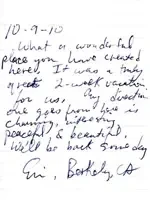 10-9-10
What a wonderful
place you have created
here. It was a truly
great 2-week vacation
for us. Any direction
one goes from here is
charming, interesting
peaceful & beautiful.
We'll be back some day
Berkeley, CA